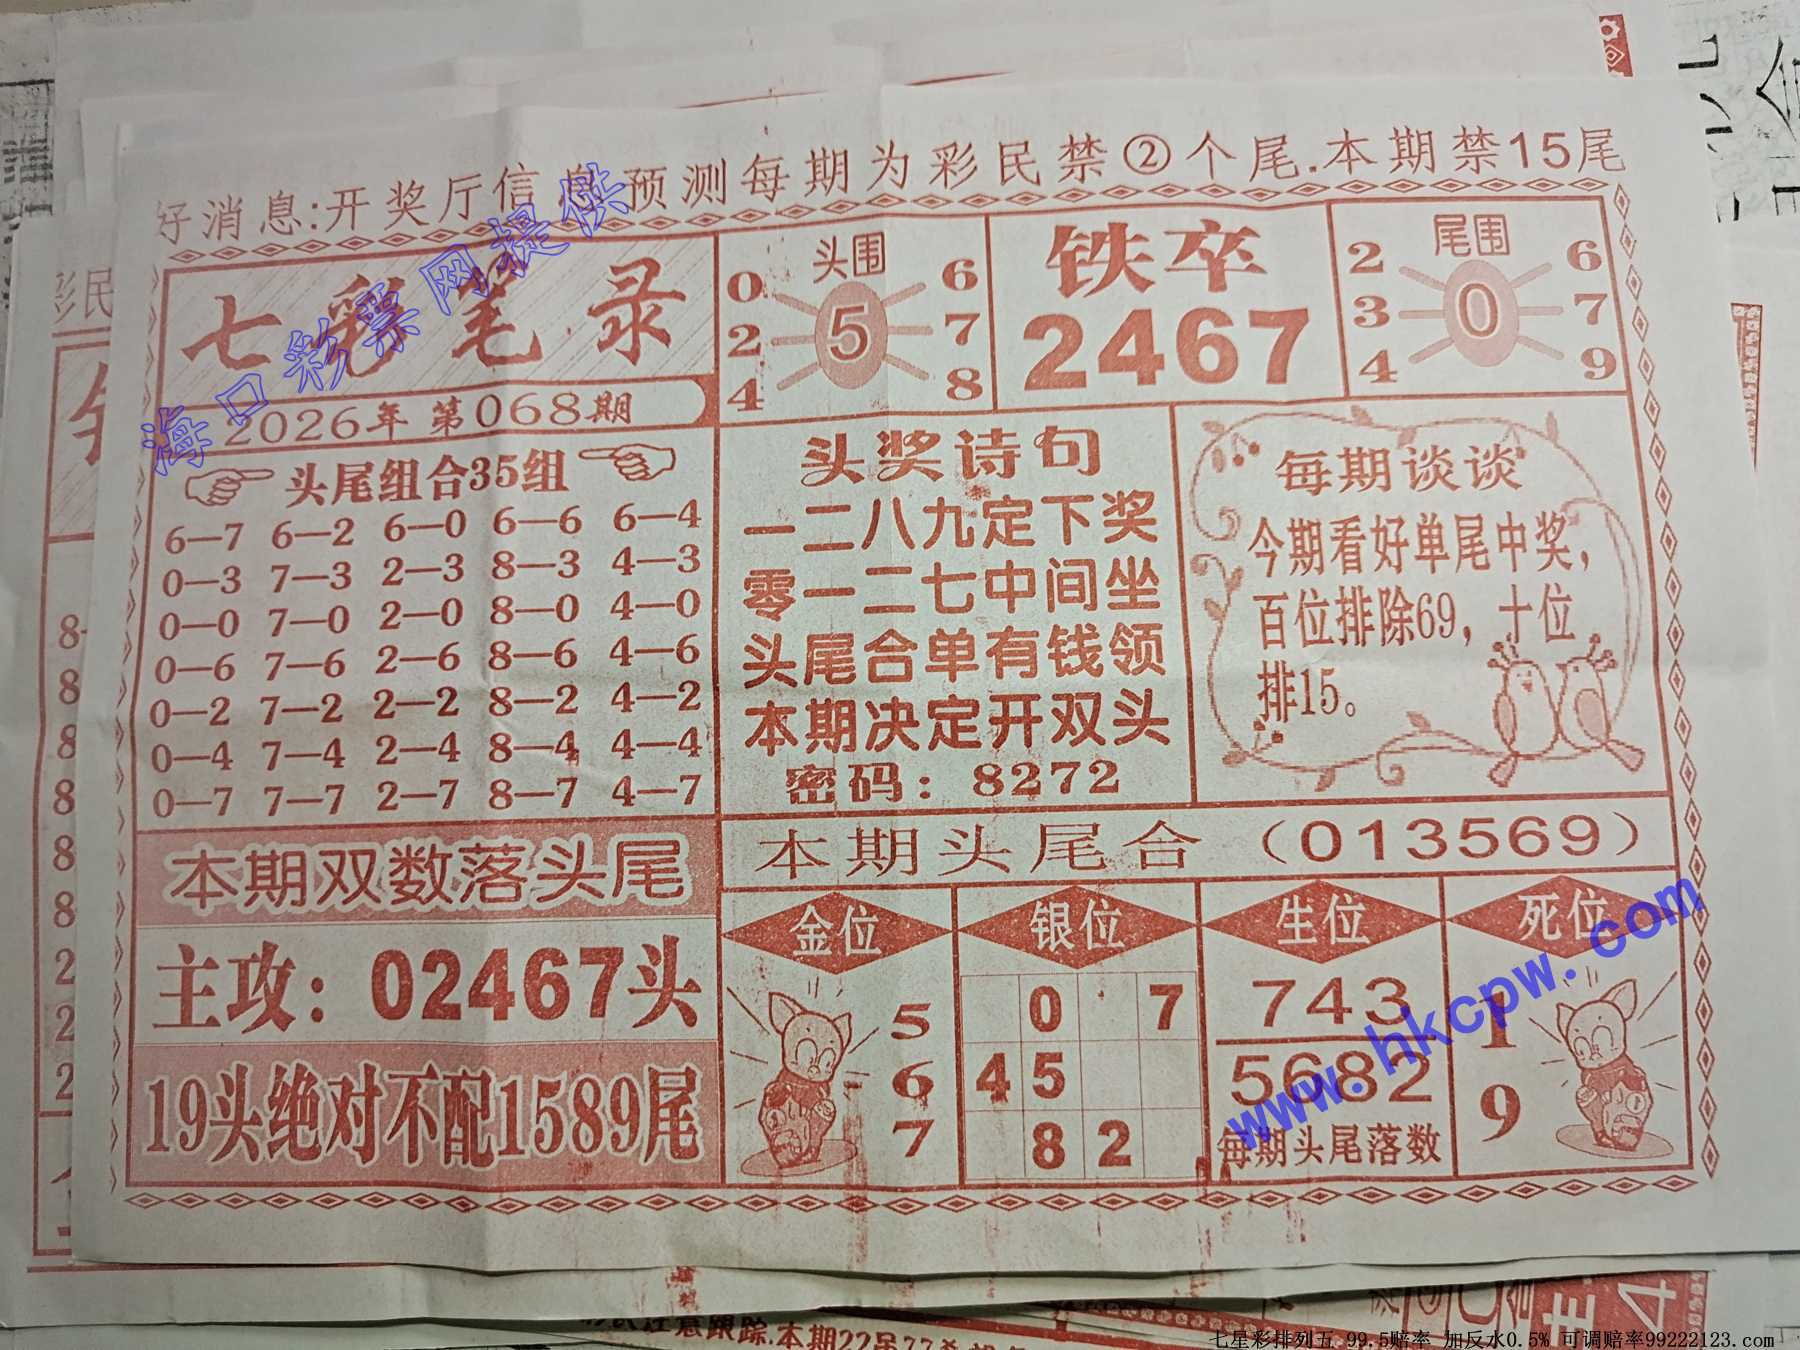 好消息:开奖厅信息预测每期为彩民禁②个尾.本期禁15尾
七彩笔录
2026年 第068期
头围
0 6
2 5 7
4 8
铁卒
2467
尾围
2 6
3 0 7
4 9
头尾组合35组
6—7 6—2 6—0 6—6 6—4
0—3 7—3 2—3 8—3 4—3
0—0 7—0 2—0 8—0 4—0
0—6 7—6 2—6 8—6 4—6
0—2 7—2 2—2 8—2 4—2
0—4 7—4 2—4 8—4 4—4
0—7 7—7 2—7 8—7 4—7
头奖诗句
一二八九定下奖
零一二七中间坐
头尾合单有钱领
本期决定开双头
密码：8272
每期谈谈
今期看好单尾中奖，
百位排除69，十位
排15。
本期双数落头尾
主攻：02467头
19头绝对不配1589尾
本期头尾合（013569）
金位
5
6
7
银位
0 7
4 5
8 2
生位
743
5682
每期头尾落数
死位
1
9
海口彩票网提供
www.hkcpw.com
彩民
8
8
8
8
8
8
2
2
2
本期22尾77
七星彩排列五 99.5赔率 加反水0.5% 可调赔率99222123.com